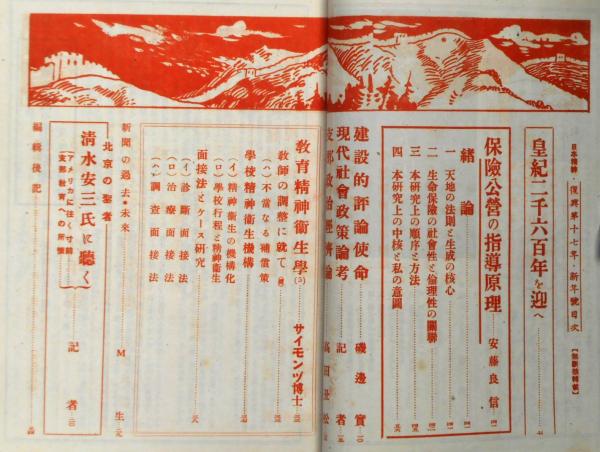 日本精神・復興第十七年・新年號目次
【無斷轉載】
皇紀二千六百年を迎へ
保險公營の指導原理 安藤良信
緒論
一 天地の法則と生成の核心
二 生命保險の社會性と倫理性の關聯
三 本研究上の順序と方法
四 本研究上の中核と私の意圖
建設的評論使命 磯邊實
現代社會政策論考 記者
支那政治經濟論 高田
教育精神衞生學 サイモンヅ博士
教師の調整に就て
(ハ)不當なる補償策
學校精神衞生機構
(イ)精神衞生の機構化
(ロ)學校行程と精神衞生
面接法とケース研究
(イ)診斷面接法
(ロ)治療面接法
(ハ)調査面接法
新聞の過去・未來 M生
北京の聖者
清水安三氏に聽く 記者
(アメリカに注ぐ寸鐵
支那教育への
編輯後記